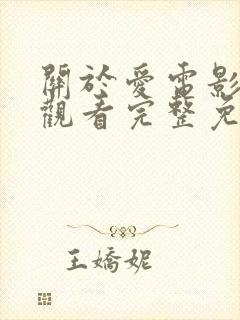 關於愛電影
觀看完整免
王嬌妮